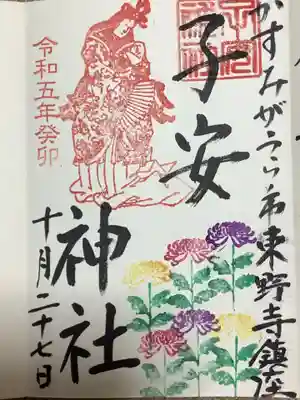 かすみがうら市東野寺鎮座
子安神社
令和五年癸卯
十月二十七日